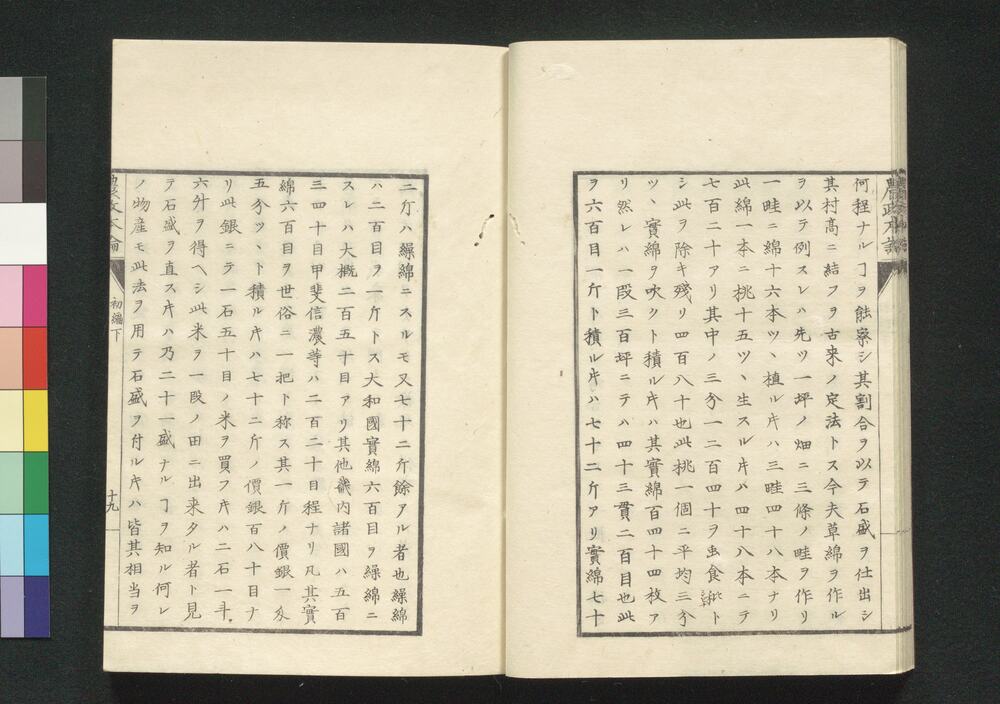 何程ナルヿヲ能察シ其割合ヲ以テ石盛ヲ仕出シ
其村高ニ結フヲ古来ノ定法トス今夫草綿ヲ作ル
ヲ以テ例スレハ先ツ一坪ノ畑ニ三條ノ畦ヲ作リ
一畦ニ綿十六本ツヽ植ルキハ三畦四十八本ナリ
此綿一本ニ桃十五ツヽ生スルキハ四十八本ニテ
七百二十アリ其中ノ三分一二百四十ヲ虫食ト
シ此ヲ除キ残リ四百八十也此桃一個ニ平均三分
ツヽ實綿ヲ吹クト積ルキハ其實綿百四十四枚ア
リ然レハ一段三百坪ニテハ四十三貫二百目也此
ヲ六百目一斤ト積ルキハ七十二斤アリ實綿七十
二斤ハ繰綿ニスルモ又七十二斤餘アル者也繰綿
ハ二百目ヲ一斤トス大和國實綿六百目ヲ繰綿ニ
スレハ大概二百五十目アリ其他畿内諸國ハ五百
三四十目甲斐信濃等ハ二百二十目程ナリ凡其實
綿六百目ヲ世俗ニ一把ト称ス其一斤ノ價銀一匁
五分ツヽト積ルキハ七十二斤ノ價銀百八十目ナ
リ此銀ニテ一石五十目ノ米ヲ買フキハ二石一斗
六升ヲ得ヘシ此米ヲ一段ノ田ニ出来タル者ト見
テ石盛ヲ直スキハ乃二十一盛ナルヿヲ知ル何レ
ノ物産モ此法ヲ用テ石盛ヲ付ルキハ皆其相当ヲ
初編下
十九